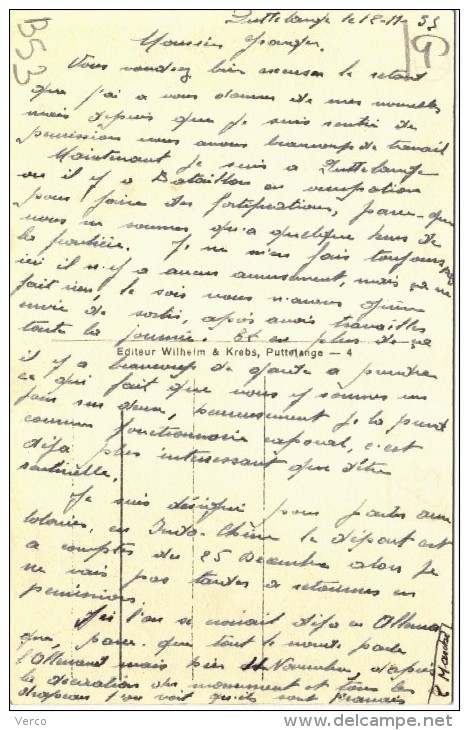 Puttelange le 12-11 35
B53
Monsieur
Vous voudrez bien excuser le retard
que j'ai a vous donner de mes nouvelles
mais depuis que je suis rentré de
permission nous avons beaucoup de travail
Maintenant je suis a Puttelange
ou il y a Bataillon en occupation
pour faire des fortifications, parce que
nous ne sommes qu'a quelque kms de
la frontière. Je ne m'en fais toujours pas
ici il n-y a aucun amusement, mais ça ne
fait rien, le soir nous n'avons guère
envie de sortir, après avoir travailler
toute la journée. Et en plus de ça
Editeur Wilhelm & Krebs, Puttelange — 4
il y a beaucoup de garde a prendre
ce qui fait que nous y sommes un
jour sur deux, je la prend
comme fonctionnaire caporal, c'est
déja plus interessant que d'être
sentinelle.
Je suis désigné pour partir aux
colonies, en Indo-Chine le départ est
a compter du 25 Decembre alors je
ne vais pas tarder a retourner en
permission
Ici l'on se croirait déja en Allema
gne, parce que tout le monde parle
l'Allemand mais hier 11 Novembre, d'après
la décoration des monument et tous les
drapeau l'on voit qu'ils sont français
Verco
http://www.delcampe.net